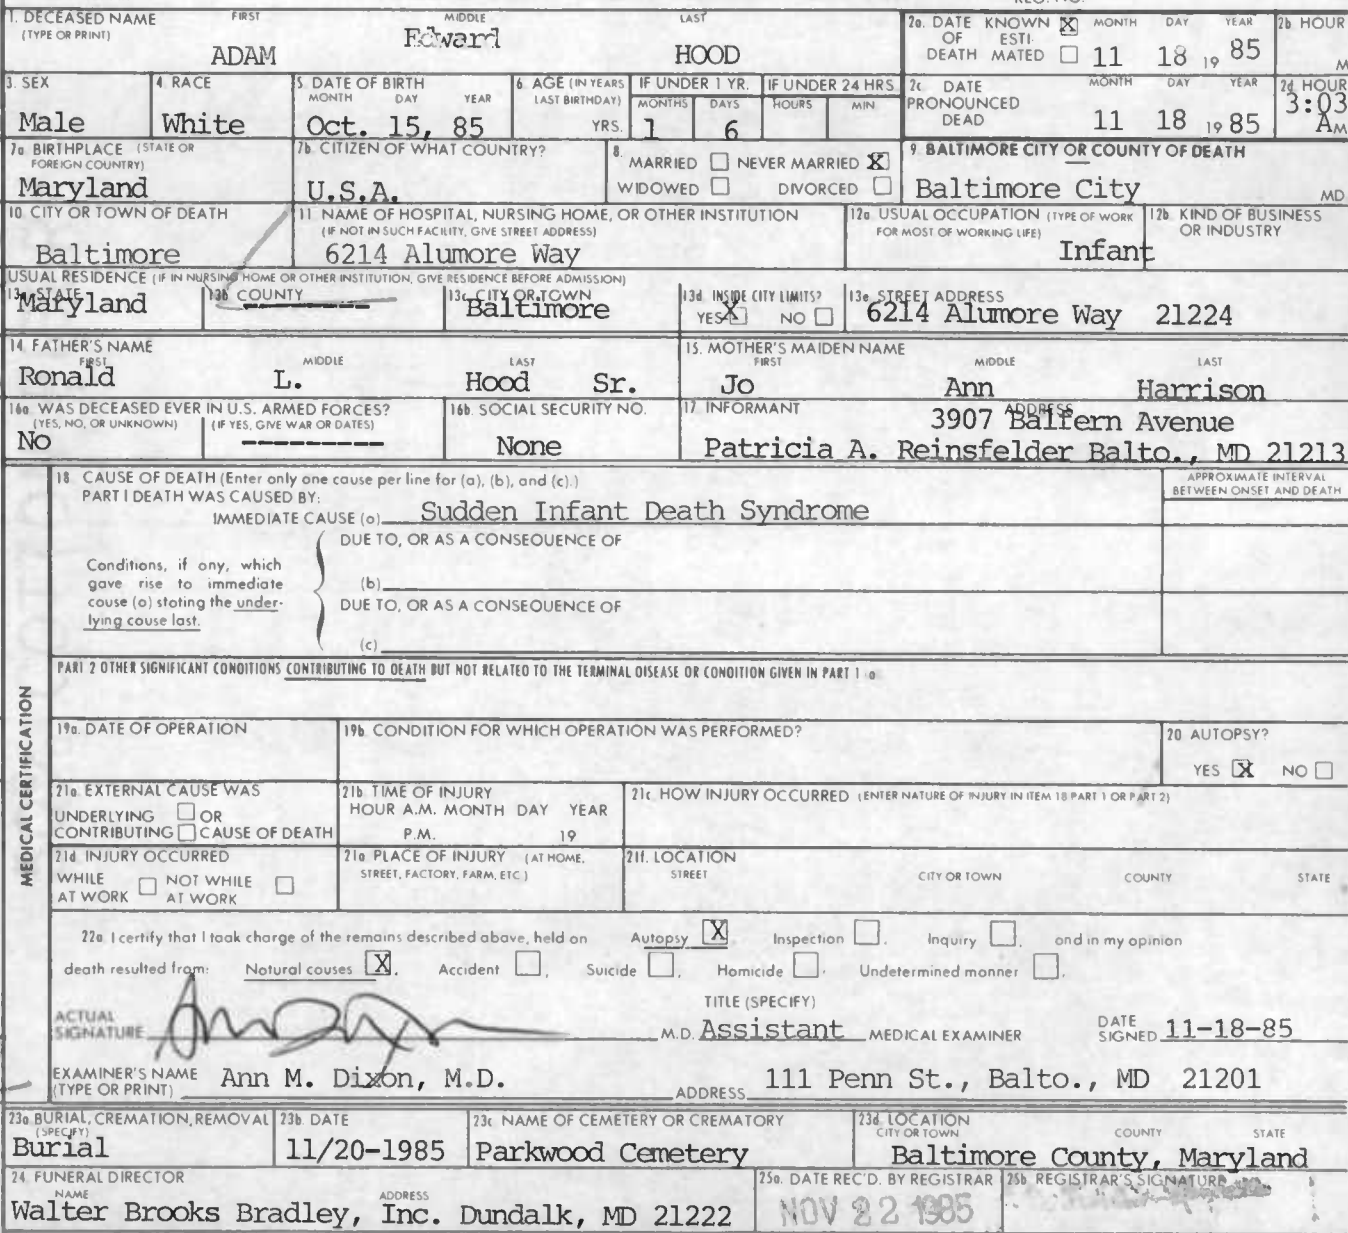 REG. NO.
1. DECEASED NAME FIRST MIDDLE LAST
(TYPE OR PRINT)
ADAM Edward HOOD
2a. DATE KNOWN X MONTH DAY YEAR
OF ESTI-
DEATH MATED 11 18 19 85
2b HOUR
M
3. SEX
Male
4. RACE
White
5. DATE OF BIRTH
MONTH DAY YEAR
Oct. 15, 85
6. AGE (IN YEARS
LAST BIRTHDAY)
YRS.
IF UNDER 1 YR.
MONTHS DAYS
1 6
IF UNDER 24 HRS
HOURS MIN
2c DATE MONTH DAY YEAR
PRONOUNCED
DEAD 11 18 19 85
2d HOUR
3:03
A M
7a BIRTHPLACE (STATE OR
FOREIGN COUNTRY)
Maryland
7b CITIZEN OF WHAT COUNTRY?
U.S.A.
8.
MARRIED NEVER MARRIED X
WIDOWED DIVORCED
9. BALTIMORE CITY OR COUNTY OF DEATH
Baltimore City MD
10 CITY OR TOWN OF DEATH
Baltimore
11 NAME OF HOSPITAL, NURSING HOME, OR OTHER INSTITUTION
(IF NOT IN SUCH FACILITY, GIVE STREET ADDRESS)
6214 Alumore Way
12a USUAL OCCUPATION (TYPE OF WORK
FOR MOST OF WORKING LIFE)
Infant
12b. KIND OF BUSINESS
OR INDUSTRY
USUAL RESIDENCE (IF IN NURSING HOME OR OTHER INSTITUTION, GIVE RESIDENCE BEFORE ADMISSION)
13a STATE
Maryland
13b COUNTY
----------
13c CITY OR TOWN
Baltimore
13d INSIDE CITY LIMITS?
YES X NO
13e STREET ADDRESS
6214 Alumore Way 21224
14 FATHER'S NAME
FIRST MIDDLE LAST
Ronald L. Hood Sr.
15. MOTHER'S MAIDEN NAME
FIRST MIDDLE LAST
Jo Ann Harrison
16a WAS DECEASED EVER IN U.S. ARMED FORCES?
(YES, NO, OR UNKNOWN) (IF YES, GIVE WAR OR DATES)
No ----------
16b. SOCIAL SECURITY NO.
None
17 INFORMANT ADDRESS
3907 Balfern Avenue
Patricia A. Reinsfelder Balto., MD 21213
MEDICAL CERTIFICATION
18 CAUSE OF DEATH (Enter only one cause per line for (a), (b), and (c).)
PART I DEATH WAS CAUSED BY:
IMMEDIATE CAUSE (a) Sudden Infant Death Syndrome
APPROXIMATE INTERVAL
BETWEEN ONSET AND DEATH
DUE TO, OR AS A CONSEQUENCE OF
Conditions, if any, which
gave rise to immediate
cause (a) stating the under-
lying cause last.
(b)
DUE TO, OR AS A CONSEQUENCE OF
(c)
PART 2 OTHER SIGNIFICANT CONDITIONS CONTRIBUTING TO DEATH BUT NOT RELATED TO THE TERMINAL DISEASE OR CONDITION GIVEN IN PART 1 a
19a. DATE OF OPERATION
19b. CONDITION FOR WHICH OPERATION WAS PERFORMED?
20 AUTOPSY?
YES X NO
21a EXTERNAL CAUSE WAS
UNDERLYING OR
CONTRIBUTING CAUSE OF DEATH
21b TIME OF INJURY
HOUR A.M. MONTH DAY YEAR
P.M. 19
21c HOW INJURY OCCURRED (ENTER NATURE OF INJURY IN ITEM 18 PART 1 OR PART 2)
21d INJURY OCCURRED
WHILE NOT WHILE
AT WORK AT WORK
21e PLACE OF INJURY (AT HOME,
STREET, FACTORY, FARM, ETC)
21f. LOCATION
STREET CITY OR TOWN COUNTY STATE
22a I certify that I took charge of the remains described above, held on Autopsy X Inspection , Inquiry , and in my opinion
death resulted from: Natural causes X , Accident , Suicide , Homicide , Undetermined manner .
ACTUAL
SIGNATURE M.D.
TITLE (SPECIFY)
Assistant MEDICAL EXAMINER
DATE
SIGNED 11-18-85
EXAMINER'S NAME
(TYPE OR PRINT) Ann M. Dixon, M.D.
ADDRESS 111 Penn St., Balto., MD 21201
23a BURIAL, CREMATION, REMOVAL
(SPECIFY)
Burial
23b. DATE
11/20-1985
23c NAME OF CEMETERY OR CREMATORY
Parkwood Cemetery
23d LOCATION
CITY OR TOWN COUNTY STATE
Baltimore County, Maryland
24 FUNERAL DIRECTOR
NAME ADDRESS
Walter Brooks Bradley, Inc. Dundalk, MD 21222
25a. DATE REC'D. BY REGISTRAR
NOV 22 1985
25b REGISTRAR'S SIGNATURE